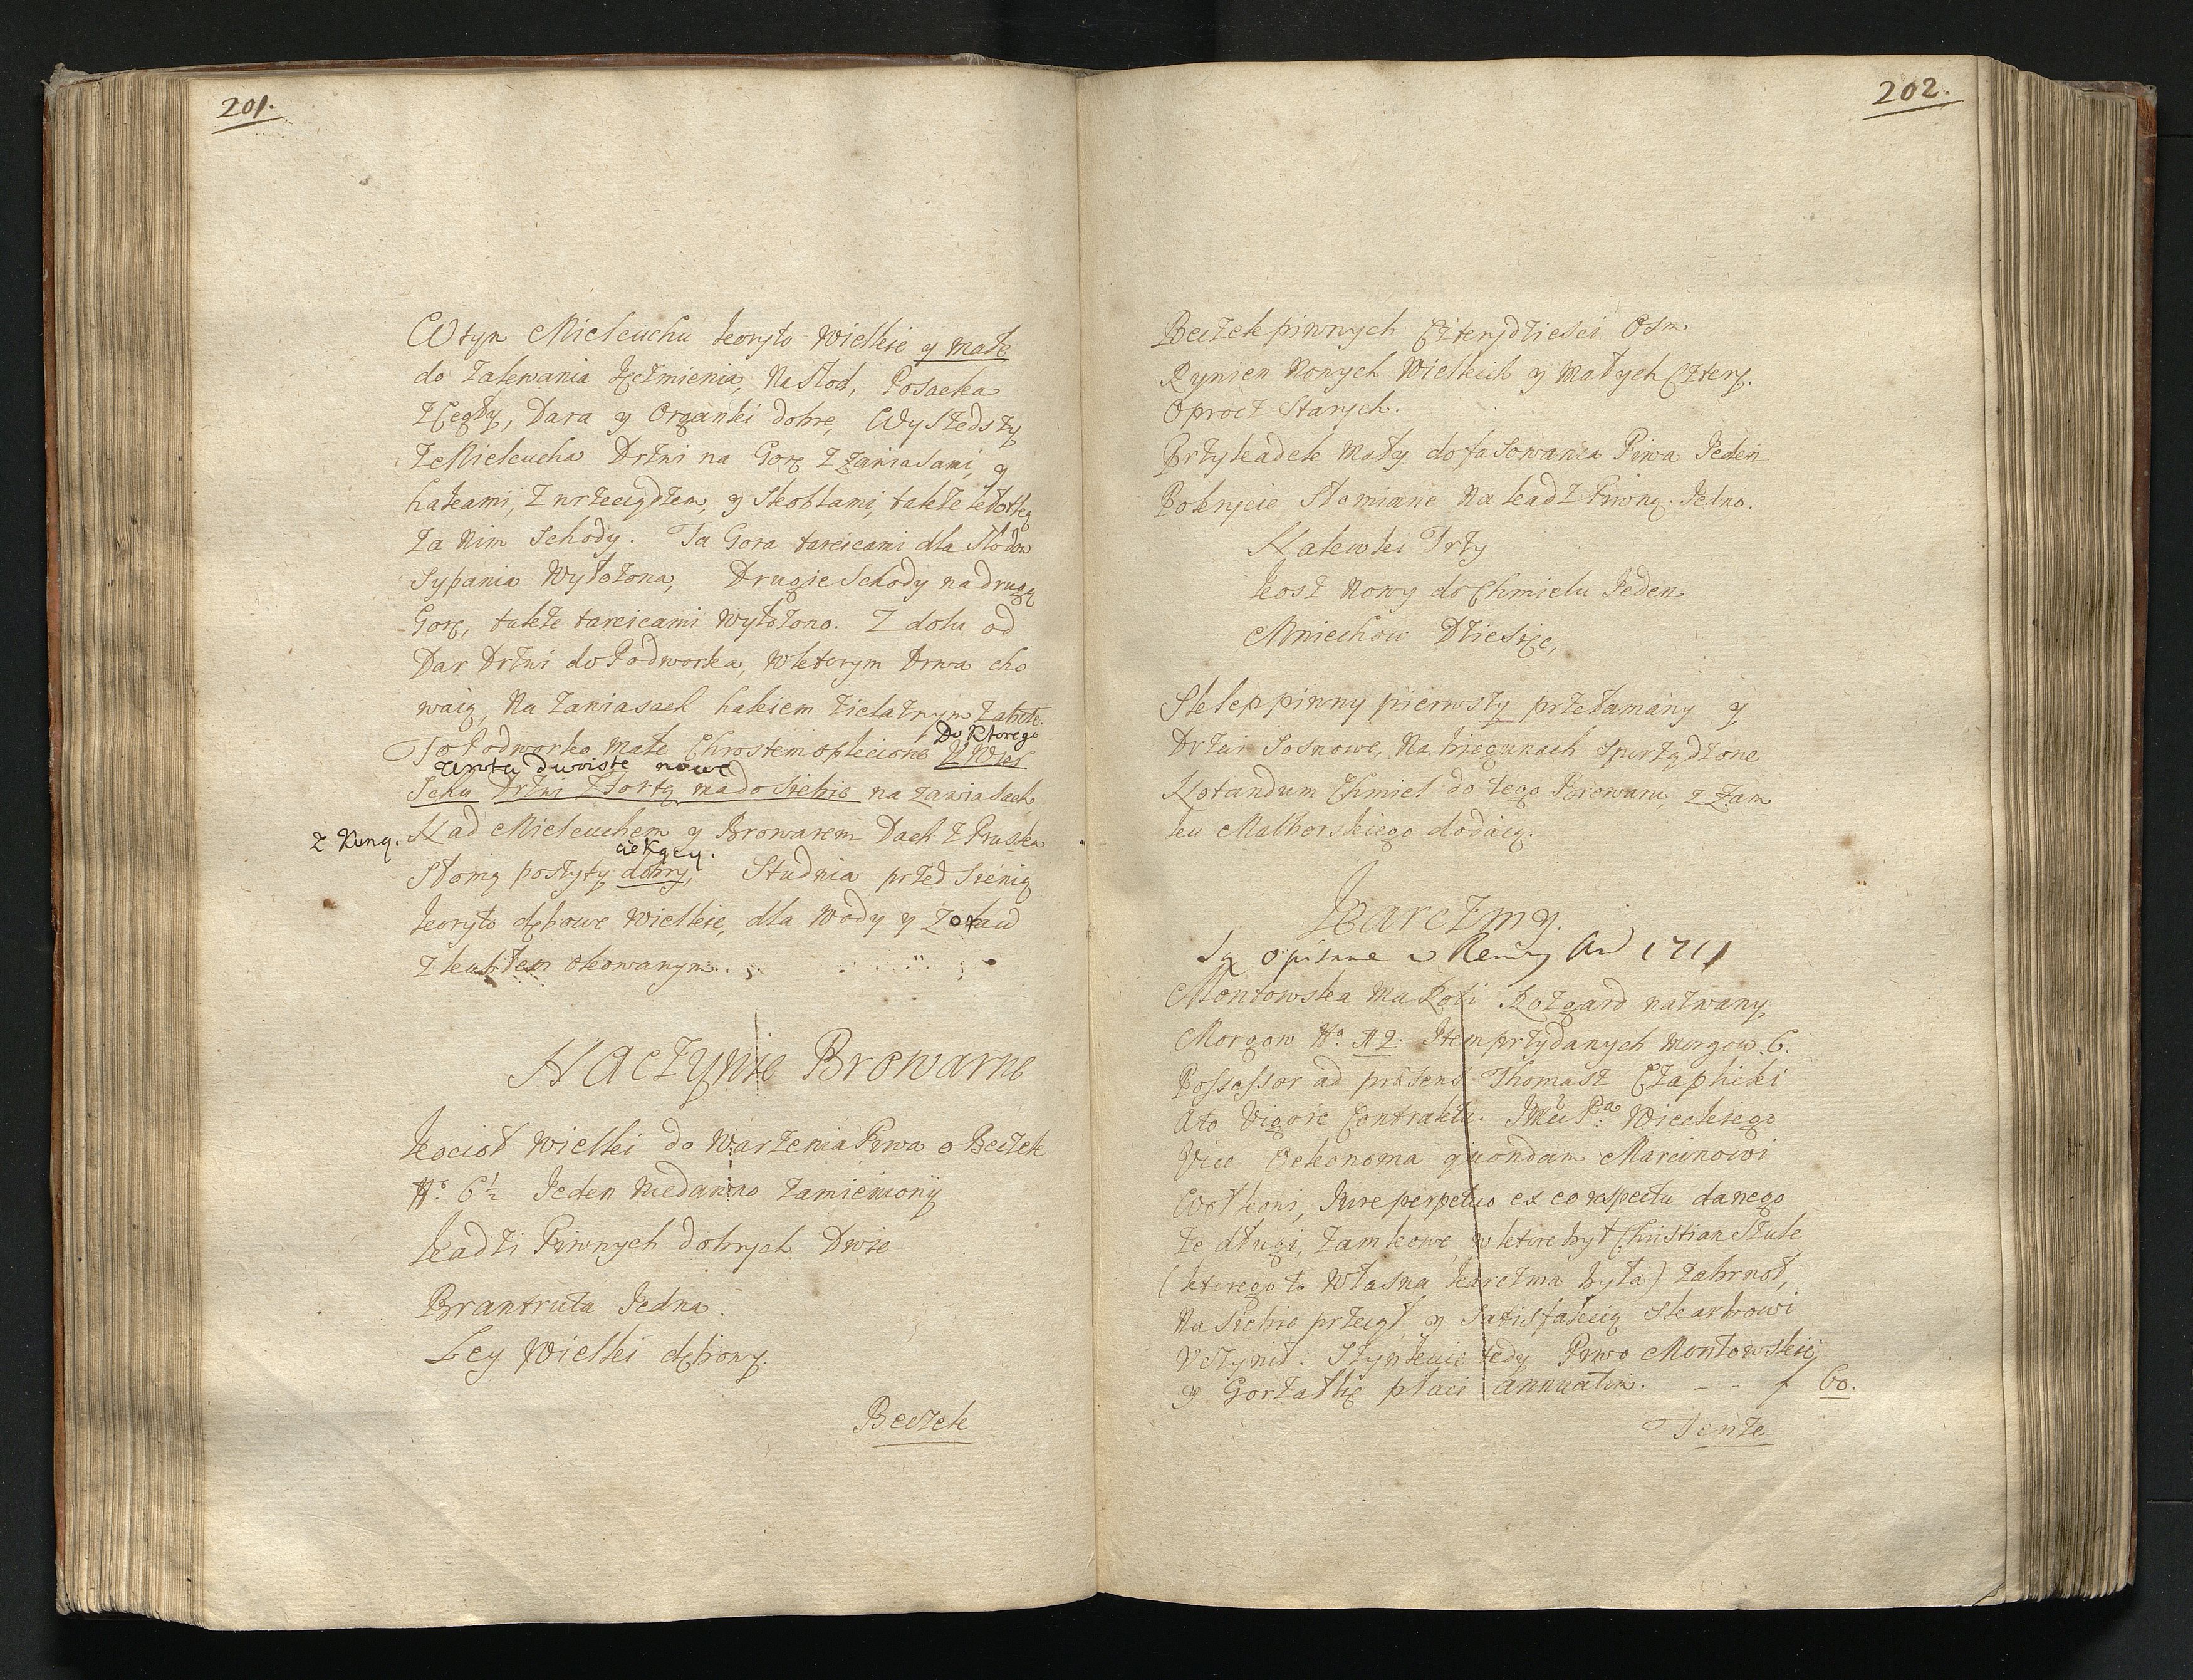 201.
W tym Mielcuchu koryto wielkie y małe
do zalewania Jęczmienia, na słod, Posacka
z Cegły, Dara y Organki dobre, Wyszedszy
z Mielcucha Drzwi na Gorę z zawiasami, y
hakami, z wrzeciądzem, y skoblami, także
za nim Schody. Ta Gora tarcicami dla Słodow
sypania wyłożona, Drugie Schody na drugą
Gorę, także tarcicami wyłożono. Z dołu od
Dar Drzwi do Podworka, w ktorym Drwa cho
waią, na zawiasach hakiem żielaznym
Do Ktorego
To Podworko małe Chrostem oplecione
Wrota dwoiste nowe
Drzwi z fortą ma do siebie na zawiasach
z Kuną. Nad Mielcuchem y Browarem Dach z Pruska
ciekący.
Słomą poszyty dobry, Studnia przed Sienią
koryto dębowe wielkie, dla wody y Żoraw
z kubłem okowanym.
Naczynie Browarne
Kocioł wielki do warzenia Piwa o Beczek
No. 6½ Jeden niedawno zamieniony
Kadzi Piwnych dobrych Dwie
Brantruta Jedna.
Ley Wielki dębowy.
Beczek
202.
Beczek piwnych Czterydziesci Osm
Rynien Nowych Wielkich y małych Cztery.
Oprocz Starych.
Przykadek mały do fasowania Piwa Jeden
Pokrycie Słomiane na kadz Piwną. Jedno.
Nalewki Trzy
Kosz Nowy do Chmielu Jeden
Mniechow Dziesięc,
Sklep piwny pierwszy przełamany y
Drzwi Sosnowe, na biegunach sporządzone
Notandum Chmiel do tego Browaru, z Zam
ku Malborskiego dodaią.
Karczmy.
Są opisane w Ao 1711
Montowska ma Roli Rozgard nazwany
Morgow No. 12. Item przydanych morgow 6.
Possessor ad præsens Thomasz Czaplicki
Ato Vigore Contraktu. Wieckiego
Vice Oekonoma quondam Marcinowi
Wołkowi, Jure perpetuo ex eo respectu danego
że długi, Zamkowe, w ktore był Christian Szulc
(ktorego to własna karczma była) zabrnoł,
na siebie przeiął y Satisfakcią Skarbowi
Uczynił: Szynkuie tedy Piwo Montowskie,
y Gorzałkę płaci annuatim. - - f 60.
Tenże